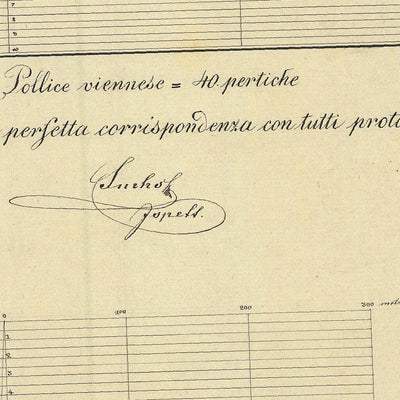 10
Pollice viennese = 40 pertiche
perfetta corrispondenza con tutti proto
Suchof
Jopell.
0 100 200 300
1
2
3
4